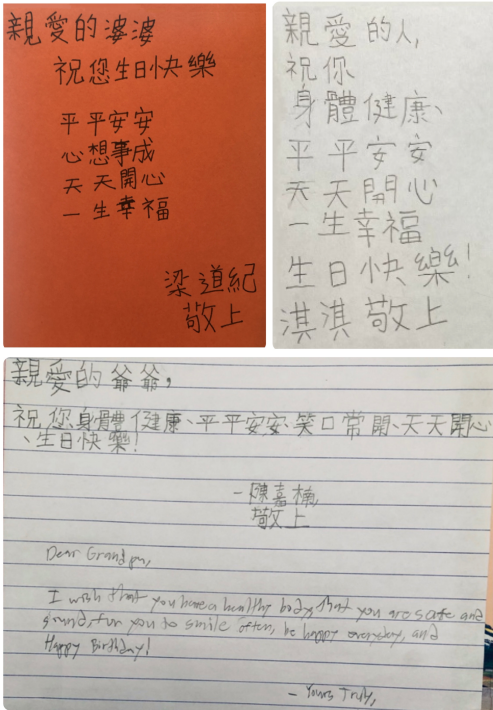 親愛的婆婆
祝您生日快樂
平平安安
心想事成
天天開心
一生幸福
梁道紀
敬上
親愛的人,
祝你
身體健康、
平平安安
天天開心
一生幸福
生日快樂!
淇淇敬上
親愛的爺爺,
祝您身體健康、平平安安、笑口常開、天天開心
、生日快樂!
-陳嘉楠
敬上
Dear Grandpa,
I wish that you have a healthy body, that you are safe and
sound, for you to smile often, be happy everyday, and
Happy Birthday!
- Yours Truly,